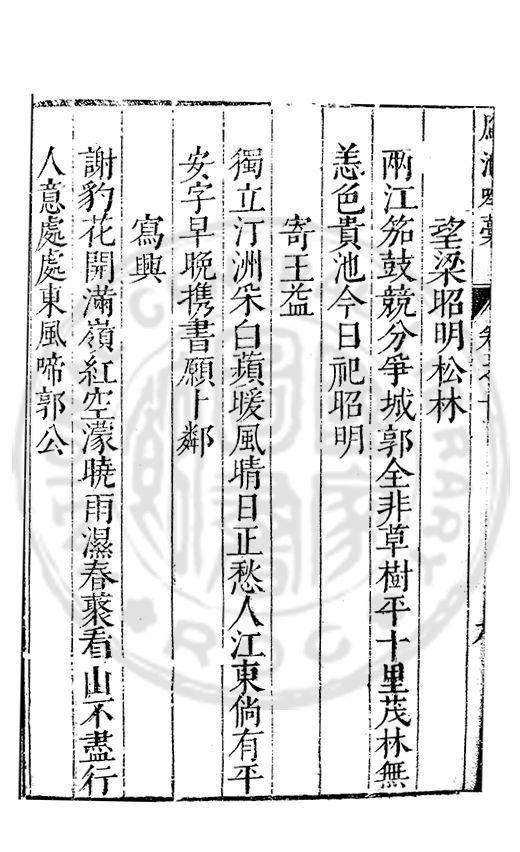 望梁昭明松林
兩江笳鼓競分爭城郭全非草樹平十里茂林無
恙色貴池今日祀昭明
寄王益
獨立汀洲采白蘋暖風晴日正愁人江東倘有平
安字早晚携書願卜鄰
寫興
謝豹花開滿嶺紅空濛曉雨濕春藂看山不盡行
人意處處東風啼郭公